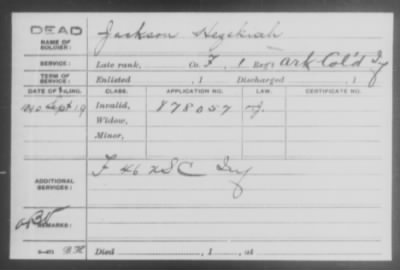 DEAD
NAME OF SOLDIER: Jackson Hezekiah
SERVICE: Late rank, Co. F, 1 Reg't Ark Col'd Inf
TERM OF SERVICE: Enlisted , 1 Discharged , 1
DATE OF FILING. CLASS. APPLICATION NO. LAW. CERTIFICATE NO.
Sept 19 Invalid, 878057
Widow,
Minor,
ADDITIONAL SERVICES: F 46 USC Inf
REMARKS:
Died , 1 , at